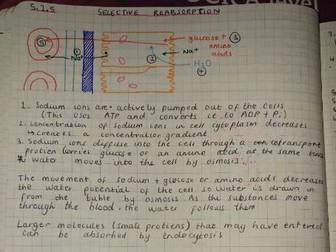 5.1.5 SELECTIVE REABSORPTION
glucose +
amino
acids
Na+
Na+
H2O
1. Sodium ions are actively pumped out of the cells
(This uses ATP and converts i.e. to ADP + Pi)
2. Concentration of sodium ions in cell cytoplasm decreases
creates a concentration gradient
3. Sodium ions diffuse into the cell through a cotransport
protein carries glucose or an amino acid at the same time
water moves into the cell by osmosis
The movement of sodium + glucose or amino acids decreases
the water potential of the cell so water is drawn in
from the tubule by osmosis. As the substances move
through the blood, the water follows them
Larger molecules (small proteins) that may have entered
can be absorbed by endocytosis